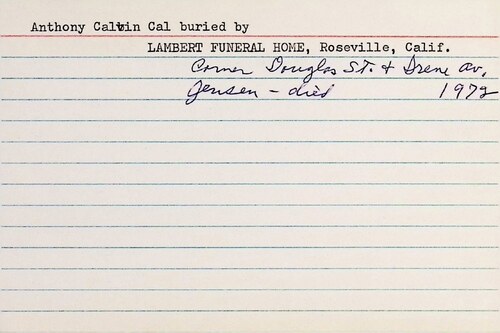 Anthony Calvin Cal buried by
LAMBERT FUNERAL HOME, Roseville, Calif.
Corner Douglas St. & Irene Av.
Jensen - died 1972